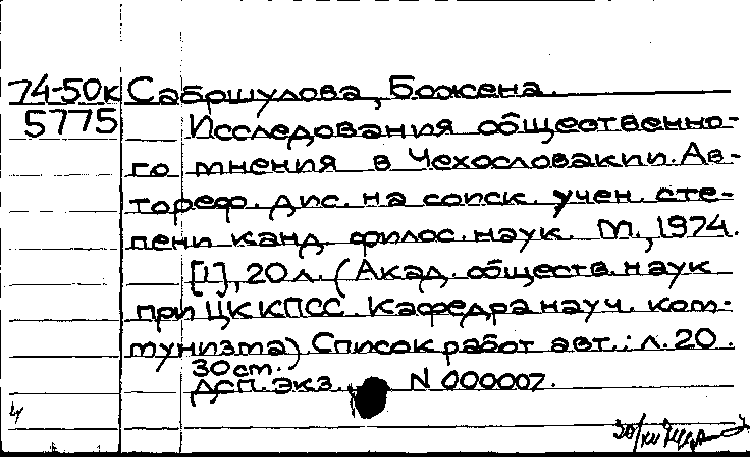 74-50к Сабршулова, Божена.
5775 Исследования общественно-
го мнения в Чехословакии. Ав-
тореф. дис. на соиск. учен. сте-
пени канд. филос. наук. М., 1974.
[1], 20 л. (Акад. обществ. наук
при ЦК КПСС. Кафедра науч. ком-
мунизма) Список работ авт.: л. 20.
30 см.
Дсп. экз. N 000007.
4
30/XII